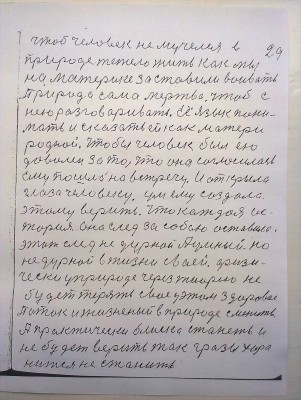 29
чтоб человек не мучелся в
природе тежело жить как мы
на материке заставили воивать
А природа сама мертва. чтоб с
нею разговаривать. Её язык пони-
мать и сказать ей как матери
родной. Чтобы человек был ею
доволен за то, что она согласилась
ему пошло на встречу. И открыла
глаза человеку. ум ему создала.
этому верить. Что каждая ис-
тория. Она след за собою оставила.
этот след не дурной А умный. но
не дурной в жизни своей. физи-
чески у природе через теорию не
будет терять свое у этом здоровье
А поток и жизненый в природе сменить
А практически близко станеть и
не будет верить так гразы хара
нится не станить